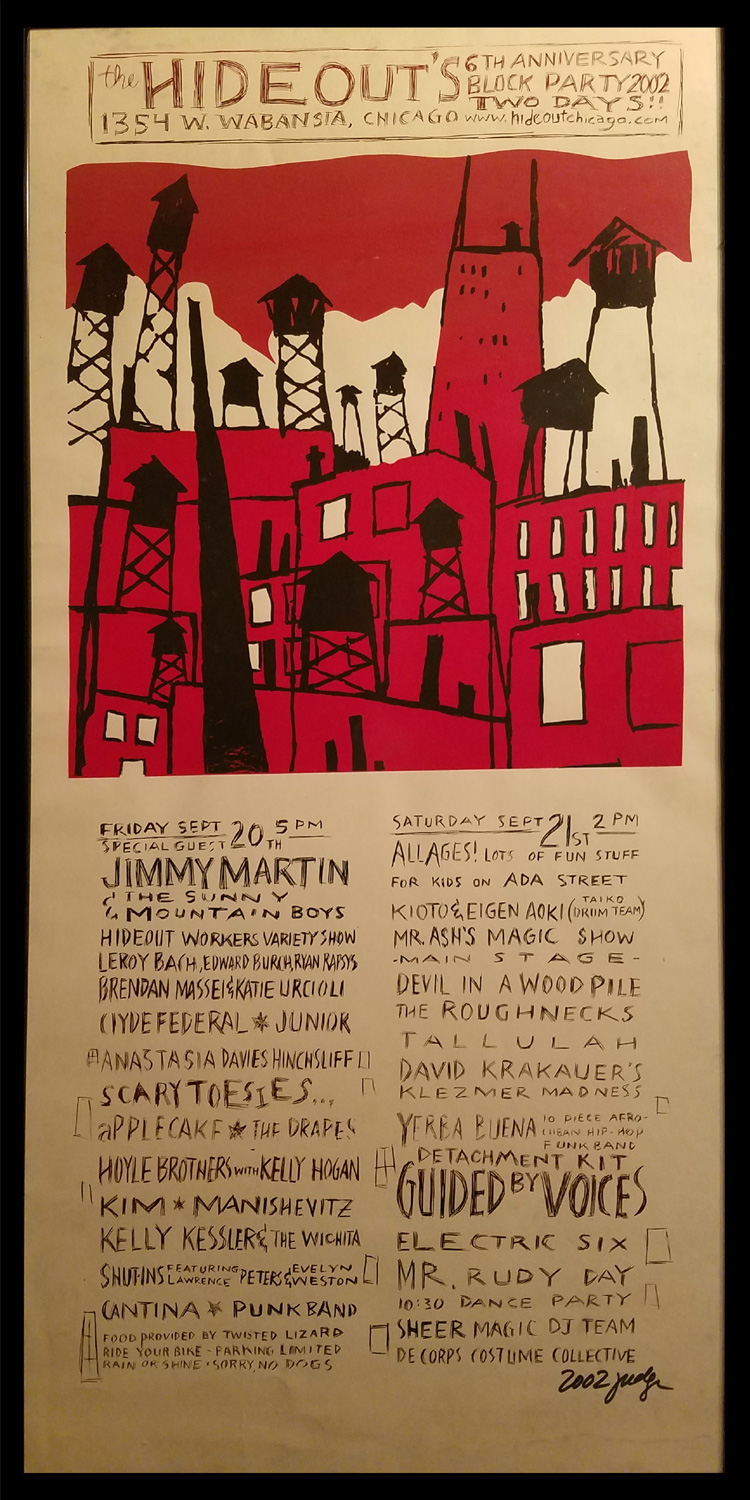 the HIDEOUT'S
6TH ANNIVERSARY
BLOCK PARTY 2002
TWO DAYS!!
1354 W. WABANSIA, CHICAGO www.hideoutchicago.com
FRIDAY SEPT 20TH 5 PM
SPECIAL GUEST
JIMMY MARTIN
& THE SUNNY
MOUNTAIN BOYS
HIDEOUT WORKERS VARIETY SHOW
LEROY BACH, EDWARD BURCH, RYAN RAPSYS
BRENDAN MASSEI & KATIE URCIOLI
CLYDE FEDERAL * JUNIOR
ANASTASIA DAVIES HINCHSLIFF
SCARY TOESIES...
APPLECAKE * THE DRAPES
HOYLE BROTHERS WITH KELLY HOGAN
KIM * MANISHEVITZ
KELLY KESSLER & THE WICHITA
SHUT-INS FEATURING LAWRENCE PETERS & EVELYN WESTON
CANTINA * PUNK BAND
FOOD PROVIDED BY TWISTED LIZARD
RIDE YOUR BIKE - PARKING LIMITED
RAIN OR SHINE • SORRY, NO DOGS
SATURDAY SEPT 21ST 2 PM
ALL AGES! LOTS OF FUN STUFF
FOR KIDS ON ADA STREET
KIOTO & EIGEN AOKI (TAIKO DRUM TEAM)
MR. ASH'S MAGIC SHOW
-MAIN STAGE-
DEVIL IN A WOODPILE
THE ROUGHNECKS
TALLULAH
DAVID KRAKAUER'S
KLEZMER MADNESS
YERBA BUENA 10 PIECE AFRO-
CUBAN HIP-HOP
FUNK BAND
DETACHMENT KIT
GUIDED BY VOICES
ELECTRIC SIX
MR. RUDY DAY
10:30 DANCE PARTY
SHEER MAGIC DJ TEAM
DECORPS COSTUME COLLECTIVE
2002 judge